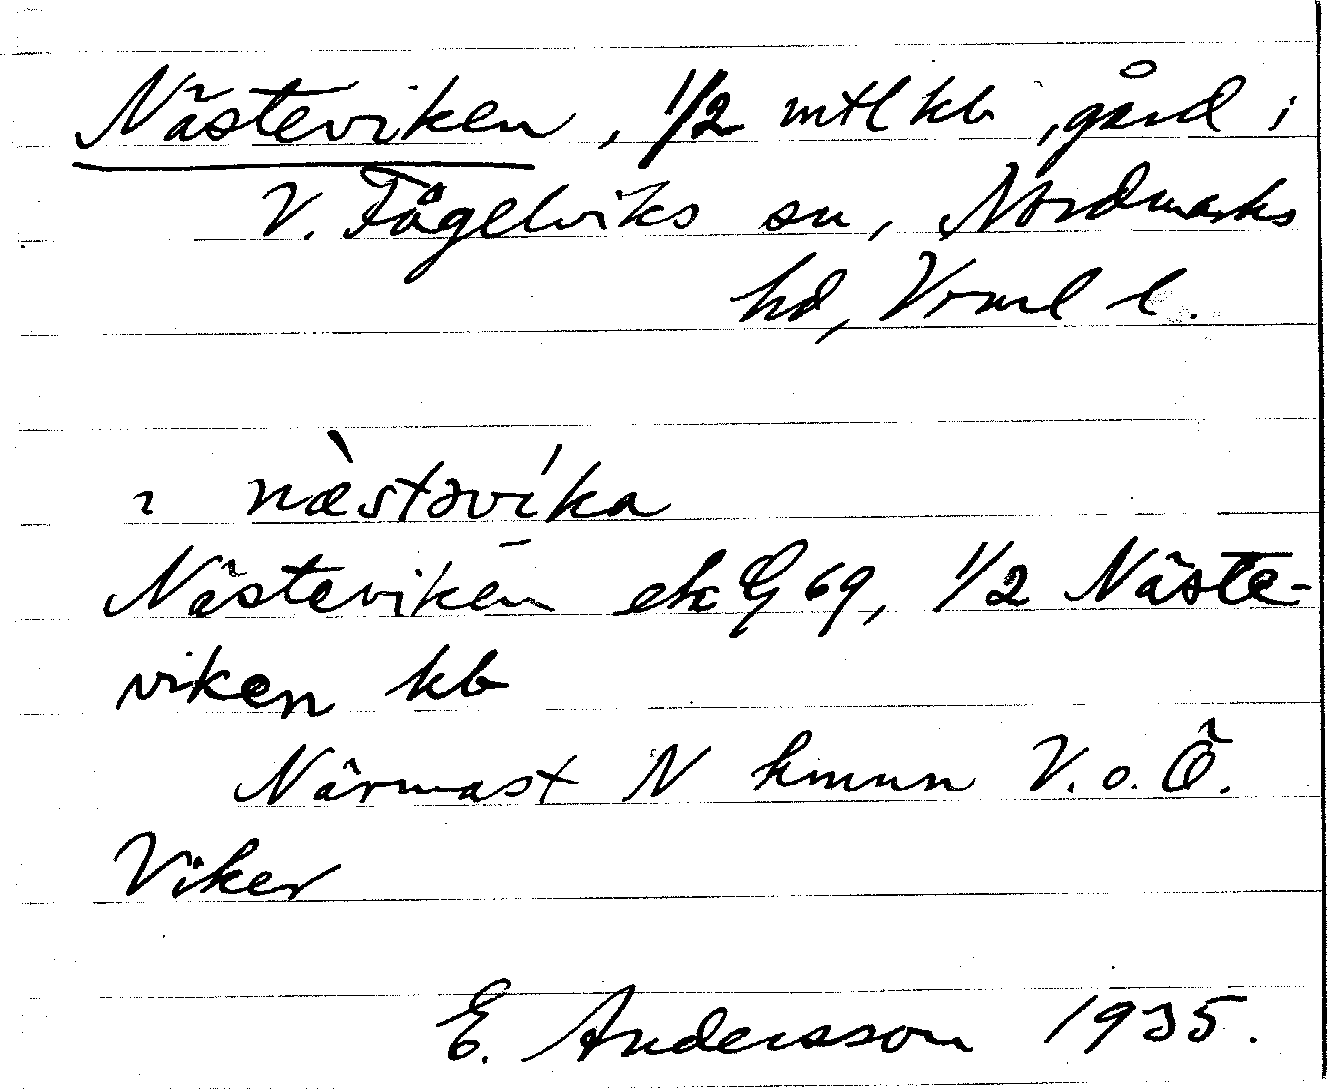 Nästeviken, 1/2 mtl kb, gård i
V. Fågelviks sn, Nordmarks
hd, Vrml l.
i næ̀stəvíka
Nästeviken ekG 69, 1/2 Näste-
viken kb
Närmast N hmnn V. o. Ö.
Viker
E. Andersson 1935.